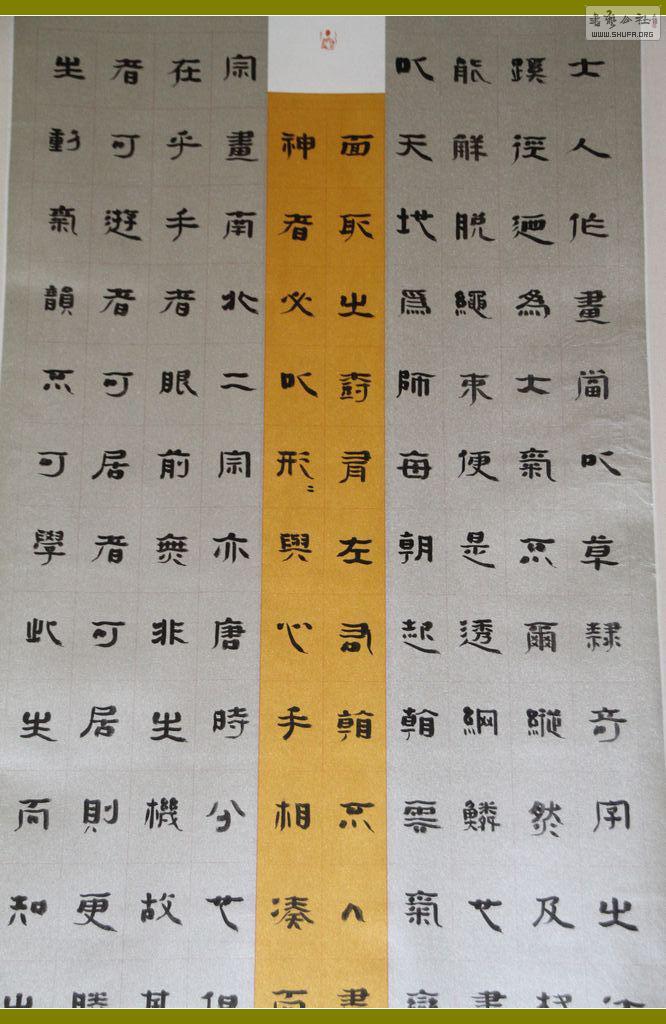 士人作畫當以草隸奇字之
蹊徑迺為士氣不爾縱然及
能解脫繩束便是透網鱗也畫
以天地爲師每朝起看雲氣變
面取之樹有左看不入畫
神者必以形〻與心手相湊而
宗畫南北二宗亦唐時分也但
在乎手者眼前無非生機故其
者可遊者可居者可居則更勝
生動氣韻不可學此生而知之
WWW.SHUFA.ORG